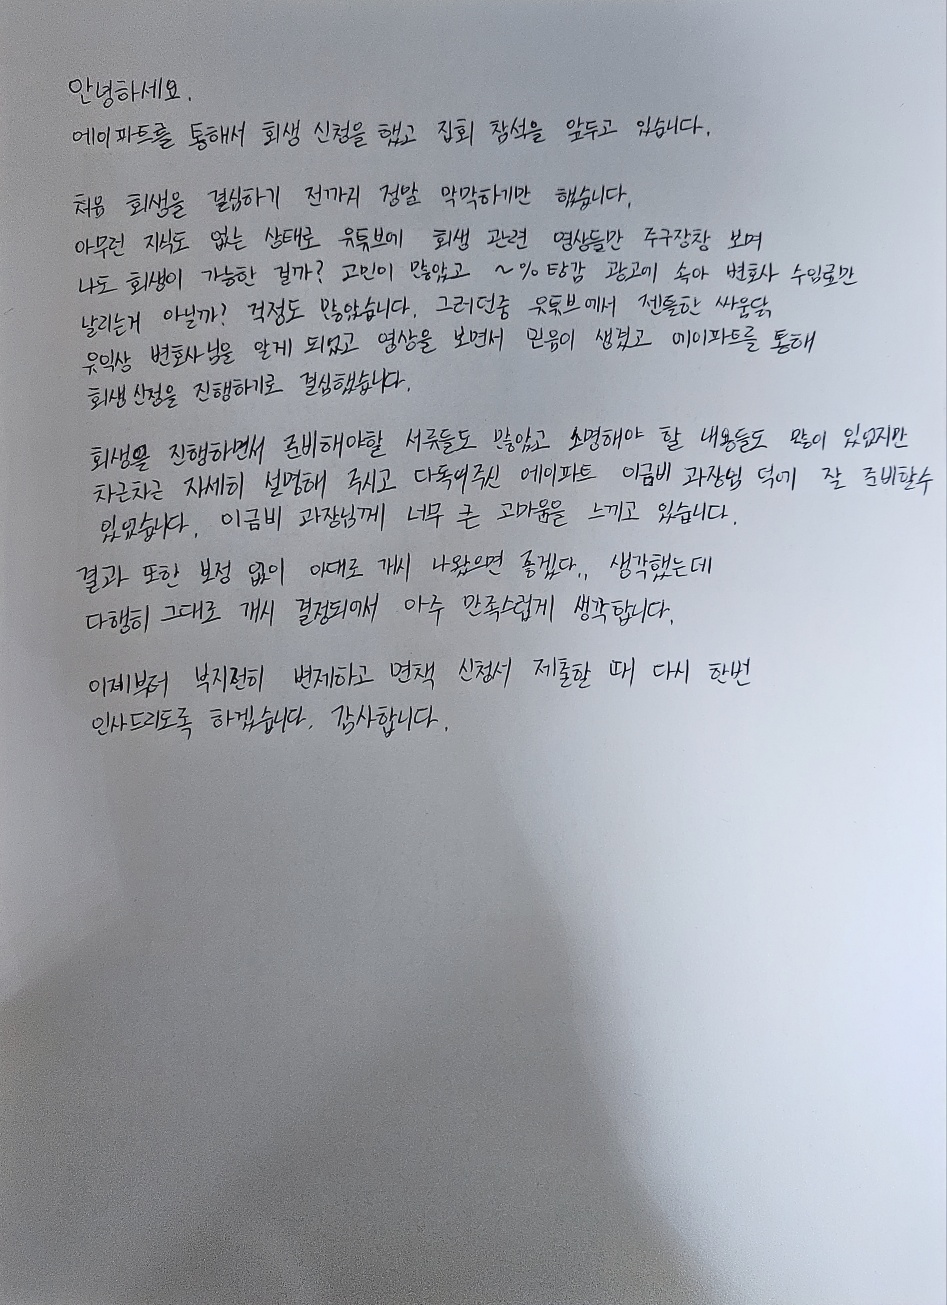 안녕하세요.
에이파트를 통해서 회생 신청을 했고 집회 참석을 앞두고 있습니다.
처음 회생을 결심하기 전까지 정말 막막하기만 했습니다.
아무런 지식도 없는 상태로 유튜브에 회생 관련 영상들만 주구장창 보며
나도 회생이 가능한 걸까? 고민이 많았고 ~% 탕감 광고에 속아 변호사 수임료만
날리는거 아닐까? 걱정도 많았습니다. 그러던중 유튜브에서 젠틀한 싸움닭
유익상 변호사님을 알게 되었고 영상을 보면서 믿음이 생겼고 에이파트를 통해
회생신청을 진행하기로 결심했습니다.
회생을 진행하면서 준비해야할 서류들도 많았고 소명해야 할 내용들도 많이 있었지만
차근차근 자세히 설명해 주시고 다독여주신 에이파트 이금비 과장님 덕에 잘 준비할수
있었습니다. 이금비 과장님께 너무 큰 고마움을 느끼고 있습니다.
결과 또한 보정 없이 이대로 개시 나왔으면 좋겠다.. 생각했는데
다행히 그대로 개시 결정되어서 아주 만족스럽게 생각합니다.
이제부터 부지런히 변제하고 면책 신청서 제출할 때 다시 한번
인사드리도록 하겠습니다. 감사합니다.